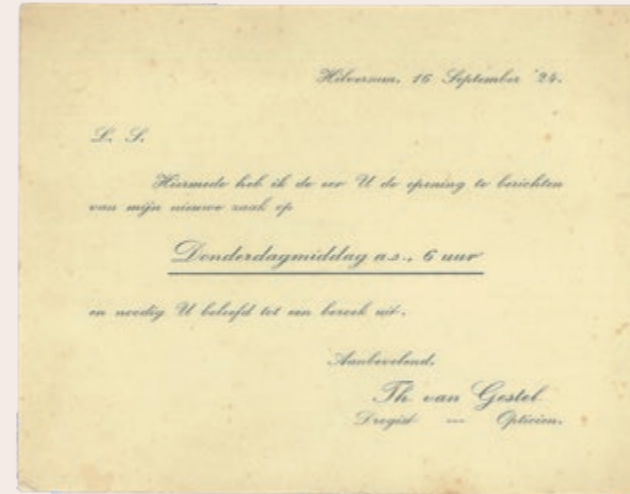 Hilversum, 16 September '24.
L. S.
Hiermede heb ik de eer U de opening te berichten
van mijn nieuwe zaak op
Donderdagmiddag a.s., 6 uur
en noodig U beleefd tot een bezoek uit.
Aanbevelend,
Th. van Gestel
Drogist — Opticien.